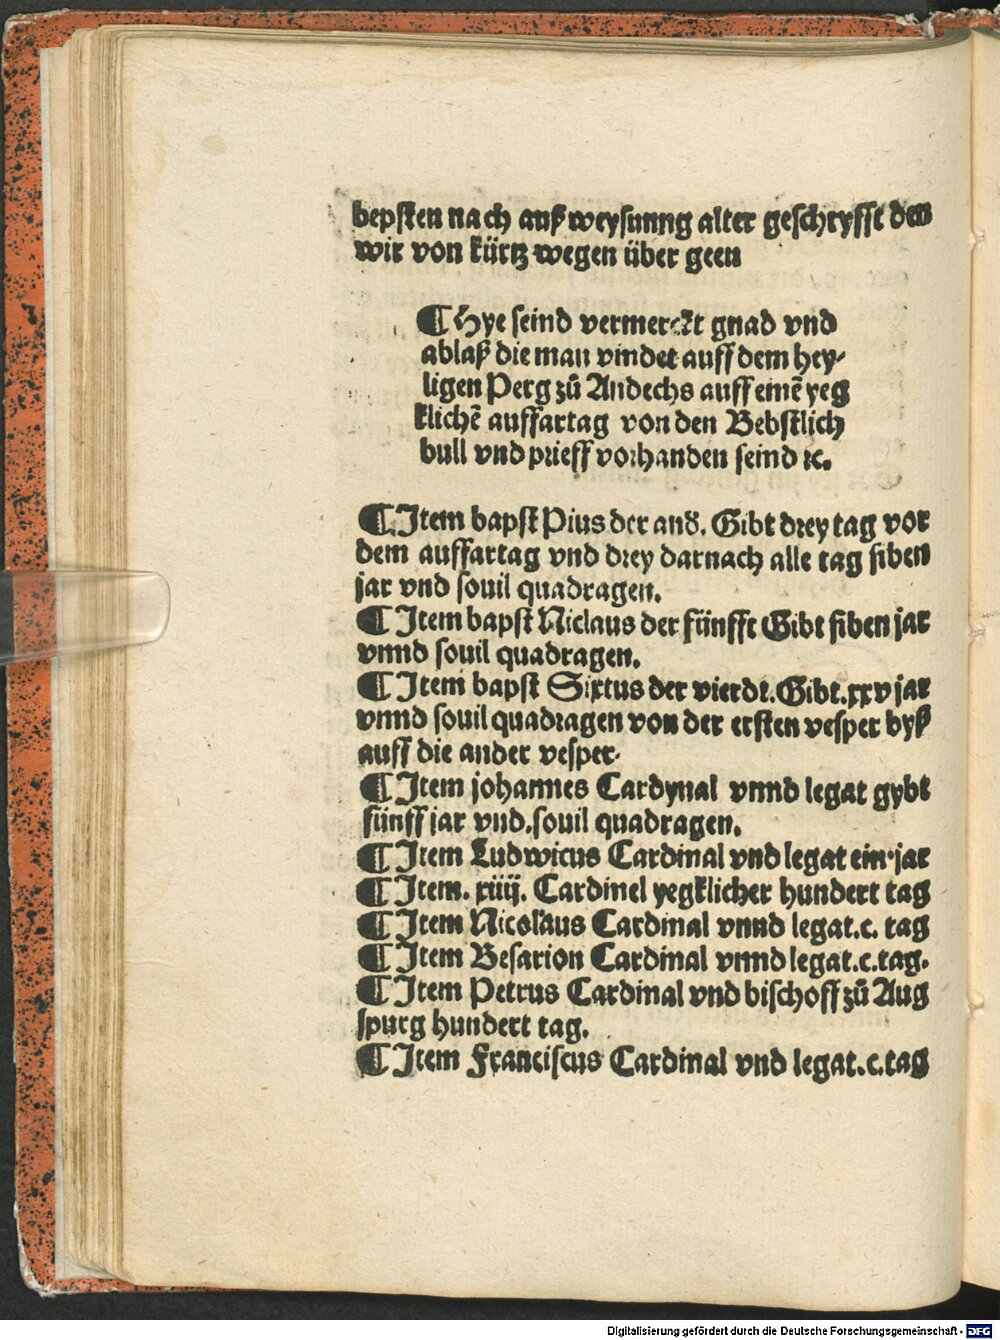 bepsten nach auß weysunng alter geschryfft den
wir von kürtz wegen über geen
¶ Hye seind vermerckt gnad vnd
ablaß die man vindet auff dem hey⸗
ligen Perg zů Andechs auff einē yeg
klichē auffartag von den Bebstlich
bull vnd prieff vorhanden seind ꝛc.
¶ Item bapst Pius der and. Gibt drey tag vor
dem auffartag vnd drey darnach alle tag siben
jar vnd souil quadragen.
¶ Item bapst Niclaus der fünfft Gibt siben jar
vnnd souil quadragen.
¶ Item bapst Sixtus der vierdt. Gibt. xxv jar
vnnd souil quadragen von der ersten vesper byß
auff die ander vesper.
¶ Item johannes Cardynal vnnd legat gybt
fünff jar vnd. souil quadragen.
¶ Item Ludwicus Cardinal vnd legat ein jar
¶ Item. xiiij. Cardinel yegklicher hundert tag
¶ Item Nicolaus Cardinal vnnd legat. c. tag
¶ Item Besarion Cardinal vnnd legat. c. tag.
¶ Item Petrus Cardinal vnd bischoff zů Aug
spurg hundert tag.
¶ Item Franciscus Cardinal vnd legat. c. tag
Digitalisierung gefördert durch die Deutsche Forschungsgemeinschaft - DFG